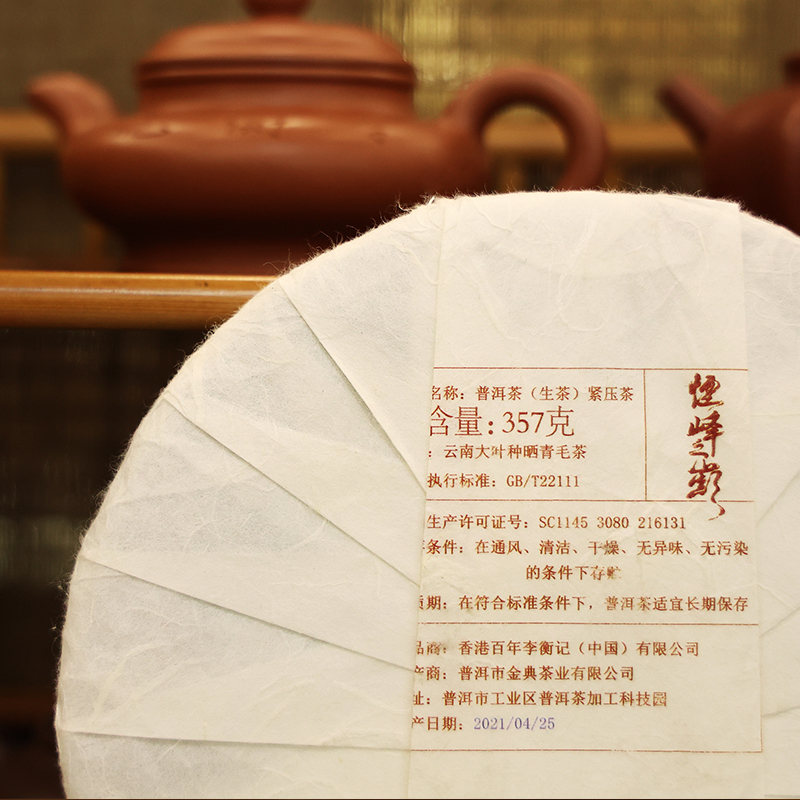 名称：普洱茶（生茶）紧压茶
含量：357克
：云南大叶种晒青毛茶
执行标准：GB/T22111
生产许可证号：SC1145 3080 216131
条件：在通风、清洁、干燥、无异味、无污染
的条件下存贮
期：在符合标准条件下，普洱茶适宜长期保存
品商：香港百年李衡记（中国）有限公司
产商：普洱市金典茶业有限公司
址：普洱市工业区普洱茶加工科技园
产日期：2021/04/25
峰之巅